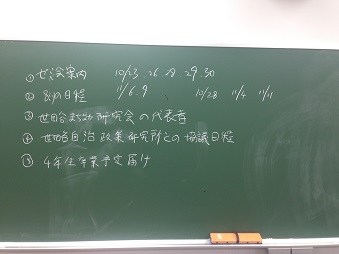 ① ゼミ案内 10/23. 26. 28 29. 30
② 日程 11/6. 9 10/28 11/4 11/11
③ 世田谷まちづくり研究会の代表者
④ 世田谷自治政策研究所との協議日程
⑤ 4年生卒業予定届け